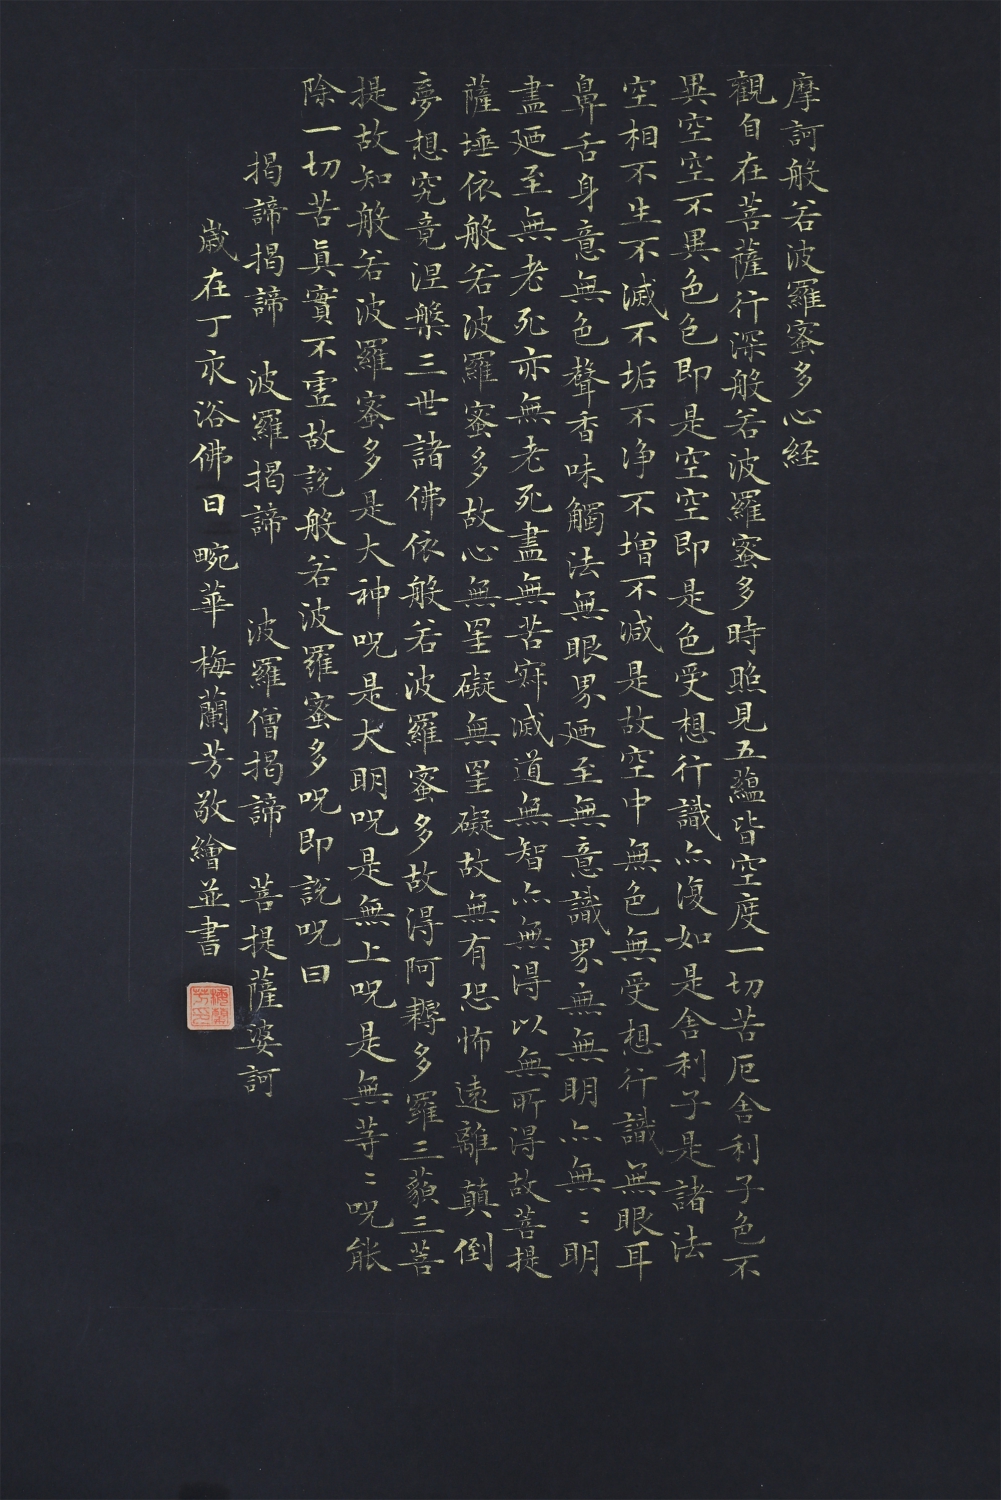 摩訶般若波羅蜜多心経
觀自在菩薩行深般若波羅蜜多時照見五蘊皆空度一切苦厄舍利子色不
異空空不異色色即是空空即是色受想行識亦復如是舍利子是諸法
空相不生不滅不垢不净不增不減是故空中無色無受想行識無眼耳
鼻舌身意無色聲香味觸法無眼界廼至無意識界無無明亦無〻明
盡廼至無老死亦無老死盡無苦寂滅道無智亦無得以無所得故菩提
薩埵依般若波羅蜜多故心無罣礙無罣礙故無有恐怖遠離顛倒
夢想究竟涅槃三世諸佛依般若波羅蜜多故得阿耨多羅三藐三菩
提故知般若波羅蜜多是大神呪是大明呪是無上呪是無等〻呪能
除一切苦真實不虛故説般若波羅蜜多呪即説呪曰
揭諦揭諦 波羅揭諦 波羅僧揭諦 菩提薩婆訶
歲在丁亥浴佛日畹華梅蘭芳敬繪並書
梅蘭芳印